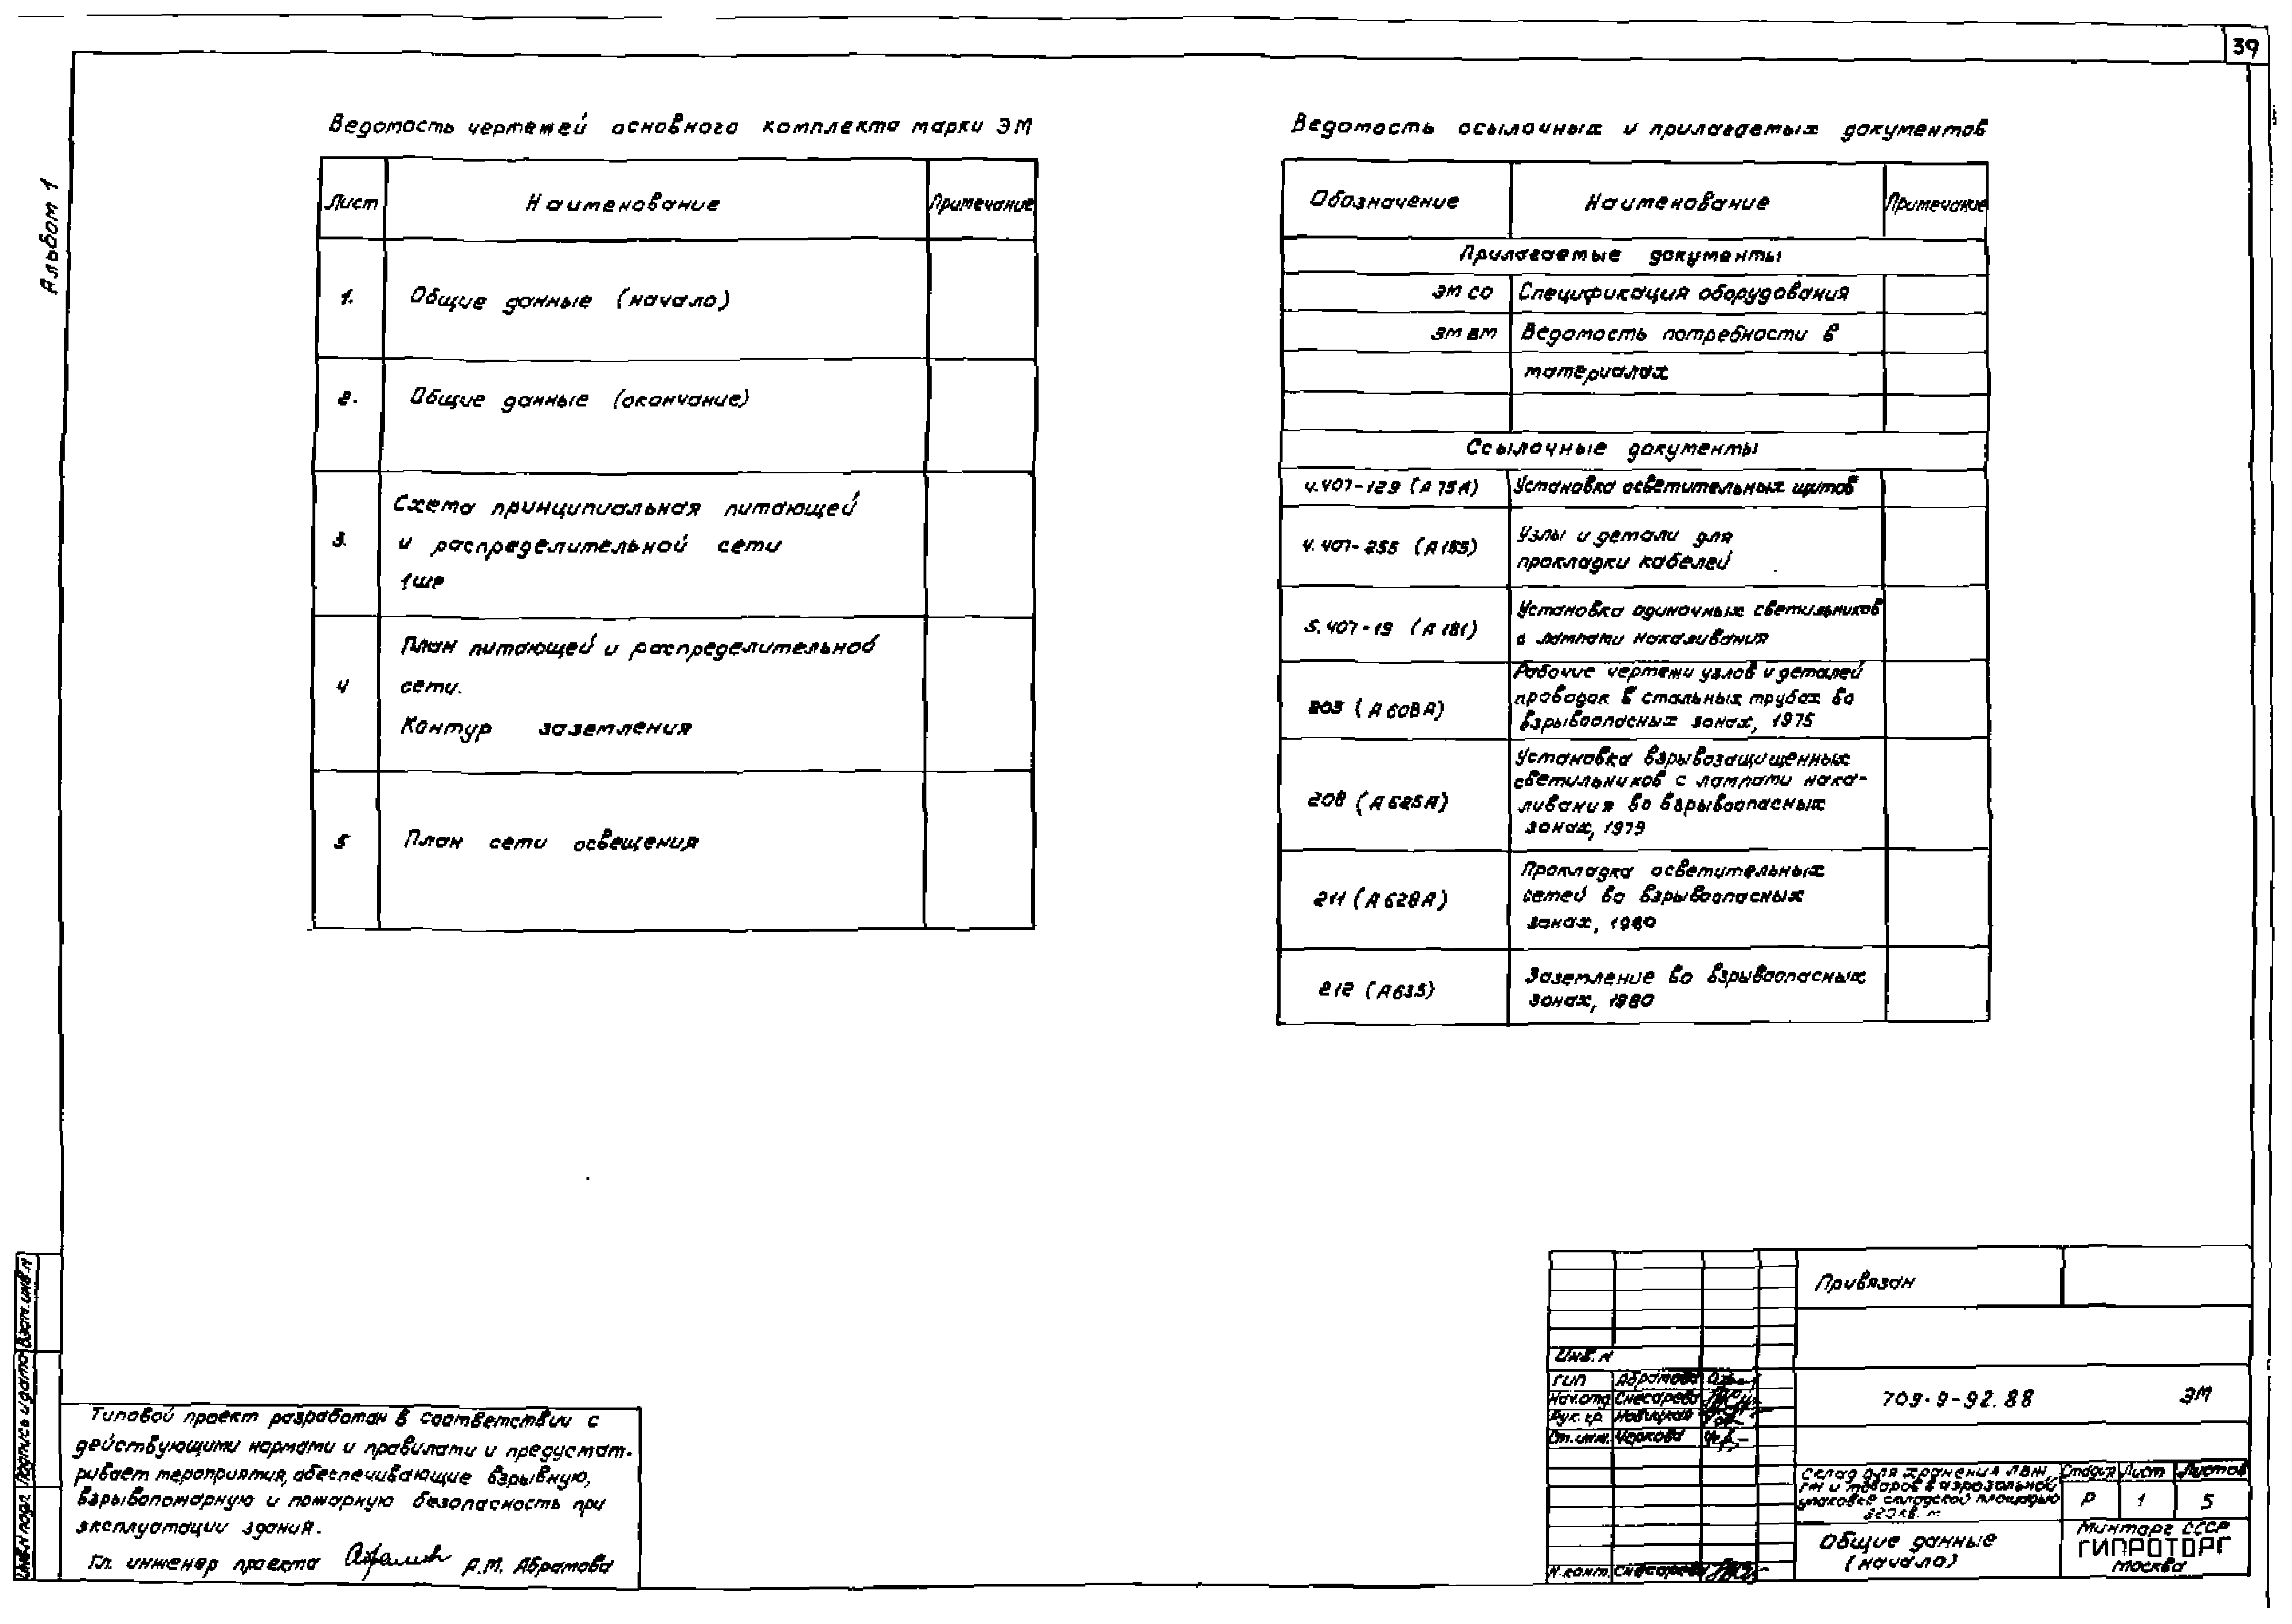 39
Альбом 1
Ведомость чертежей основного комплекта марки ЭМ
Лист
Наименование
Примечание
1.
Общие данные (начало)
2.
Общие данные (окончание)
3.
Схема принципиальная питающей
и распределительной сети
1ше
4
План питающей и распределительной
сети.
Контур заземления
5
План сети освещения
Ведомость ссылочных и прилагаемых документов
Обозначение
Наименование
Примечание
Прилагаемые документы
ЭМ СО
Спецификация оборудования
ЭМ ВМ
Ведомость потребности в
материалах
Ссылочные документы
4.407-129 (А75А)
Установка осветительных щитов
4.407-255 (А155)
Узлы и детали для
прокладки кабелей
5.407-19 (А181)
Установка одиночных светильников
с лампами накаливания
205 (А608А)
Рабочие чертежи узлов и деталей
проводок в стальных трубах во
взрывоопасных зонах, 1975
208 (А625А)
Установка взрывозащищенных
светильников с лампами нака-
ливания во взрывоопасных
зонах, 1979
211 (А628А)
Прокладка осветительных
сетей во взрывоопасных
зонах, 1980
212 (А635)
Заземление во взрывоопасных
зонах, 1980
Взам. инв. н
Подпись и дата
Инв. н подл
Типовой проект разработан в соответствии с
действующими нормами и правилами и предусмат-
ривает мероприятия, обеспечивающие взрывную,
взрывопожарную и пожарную безопасность при
эксплуатации здания.
Гл. инженер проекта
А.М. Абрамова
Привязан
Инв. н
ГИП Абрамова
Нач.отд Снесарева
Рук. гр. Новицкая
Ст. инж. Черкова
Н.конт. Снесарева
709-9-92.88 ЭМ
Склад для хранения ЛВЖ,
ГЖ и товаров в аэрозольной
упаковке складской площадью
220 кв. м
Стадия Лист Листов
Р 1 5
Общие данные
(начало)
Минторг СССР
ГИПРОТОРГ
Москва